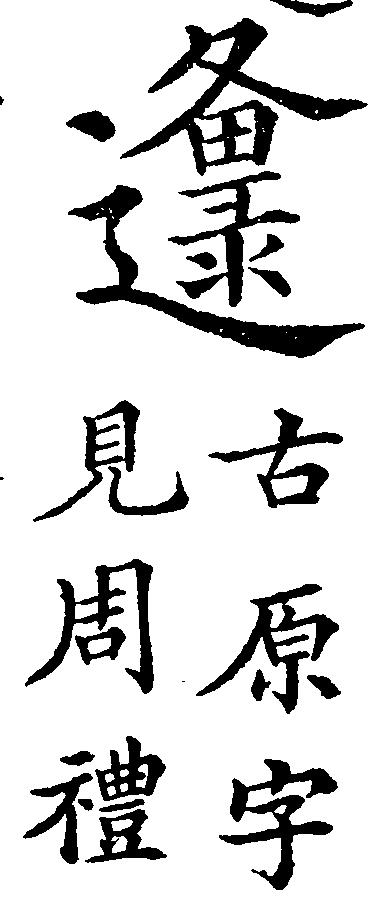 邍
古原字
見周禮